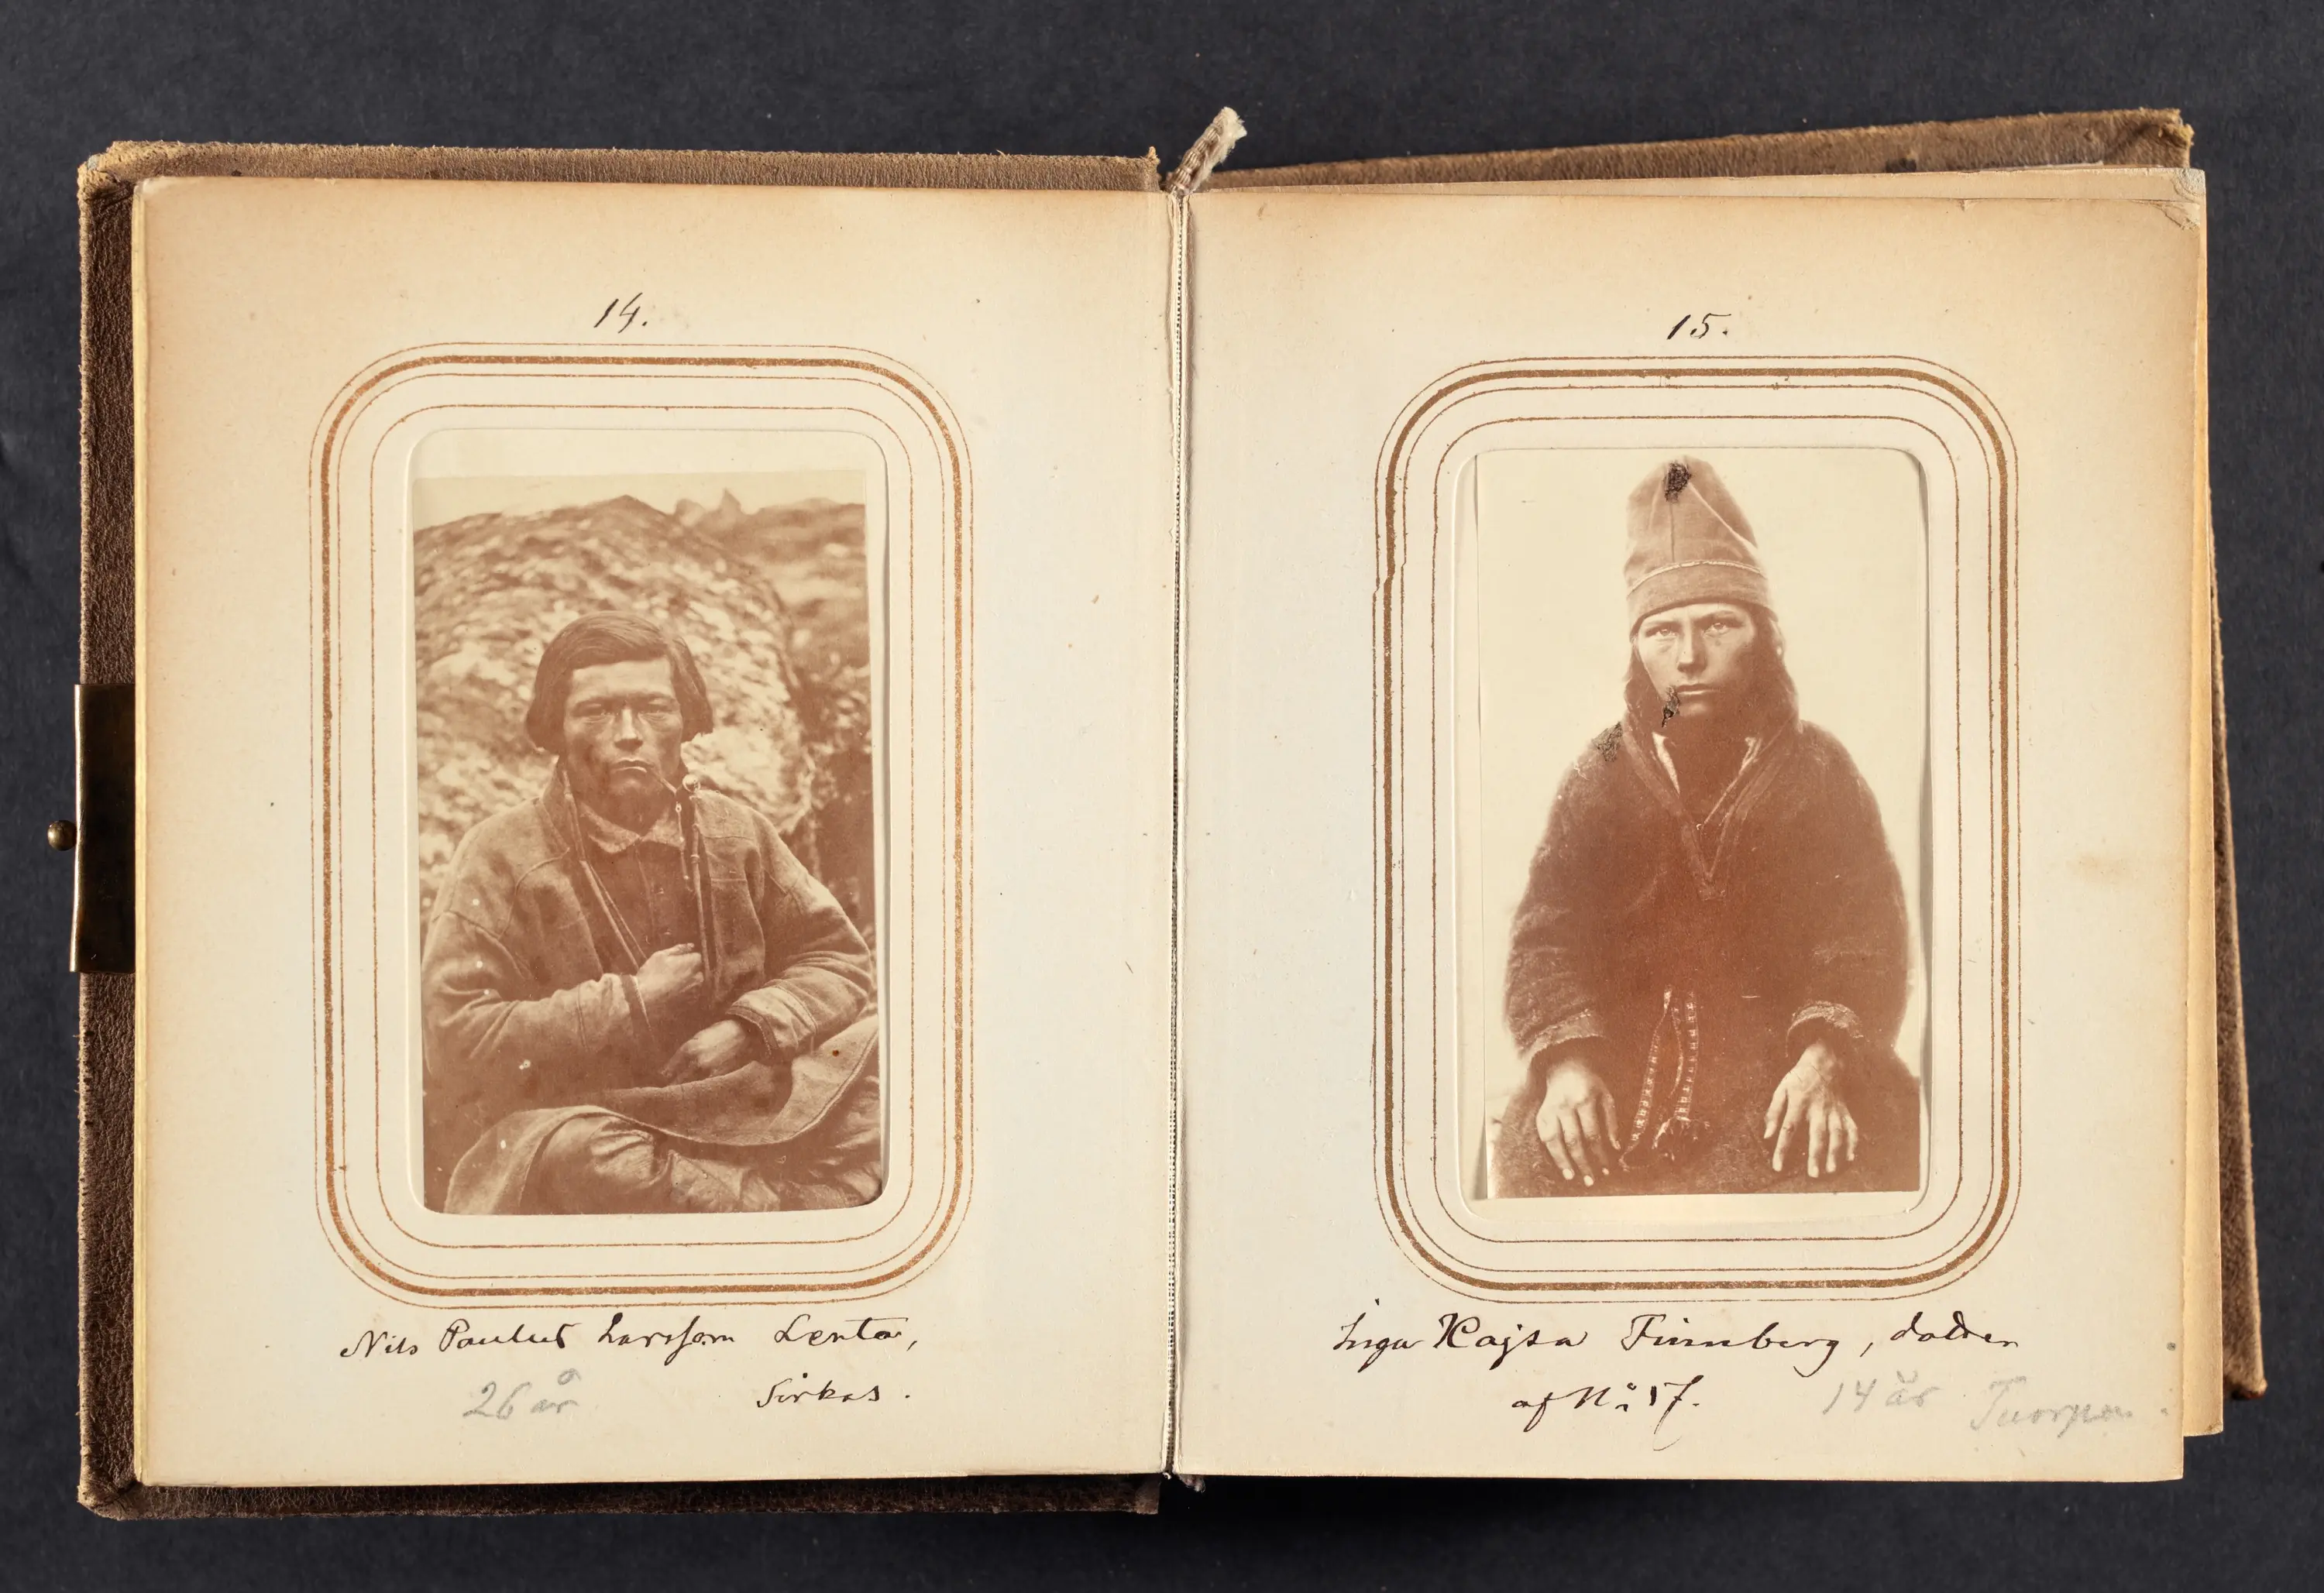 14.
Nils Paulus Larsson Lenta,
26 år Sirkas.
15.
Inga Kajsa Finnberg, dotter
af N:o 17.
14 år Tuorpon.